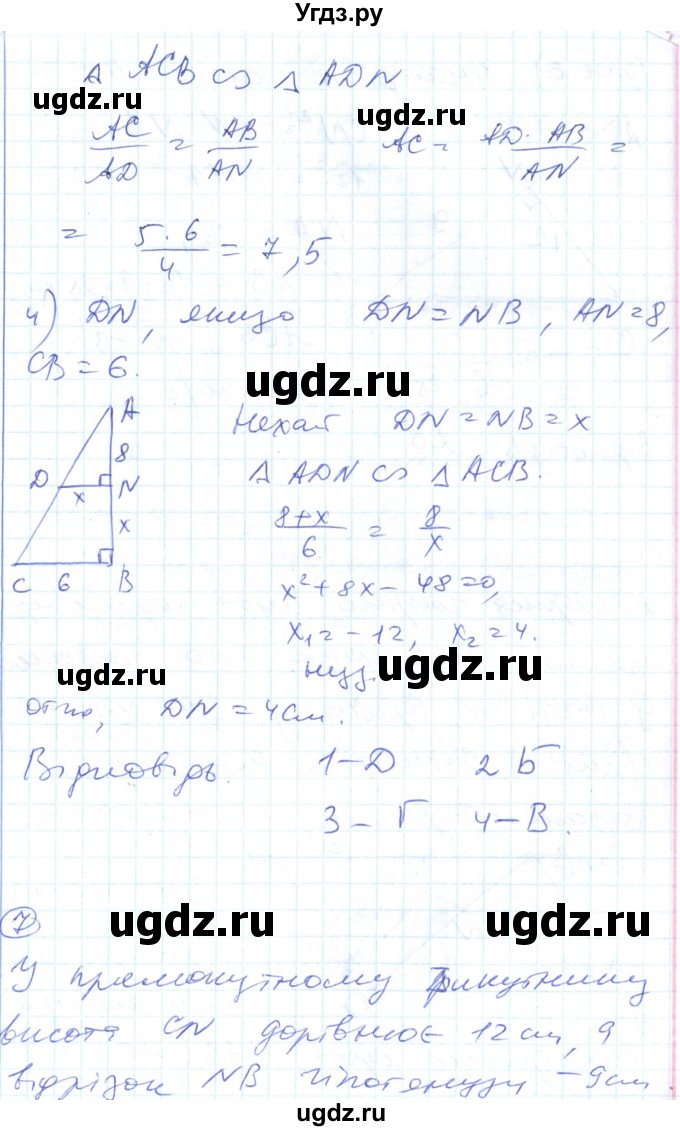 Угдз.ру
Δ ACB ∽ Δ ADN
ugdz.ru
ugdz.ru
AC/AD = AB/AN   AC = AD · AB/AN =
= 5 · 6/4 = 7,5
4) DN, якщо DN = NB, AN = 8,
CB = 6.
ugdz.ru
A
8
D
N
x
x
C 6 B
Нехай DN = NB = x
Δ ADN ∽ Δ ACB.
8+x/6 = 8/x
x² + 8x – 48 = 0,
x₁ = – 12, x₂ = 4.
ugdz.ru
ugdz.ru
Отже, DN = 4 см.
Відповідь. 1 – Д 2 Б
ugdz.ru
3 – Г 4 – В.
7
ugdz.ru
ugdz.ru
У прямокутному трикутнику
висота CN дорівнює 12 см, а
відрізок NB гіпотенузи – 9 см
ugdz.ru